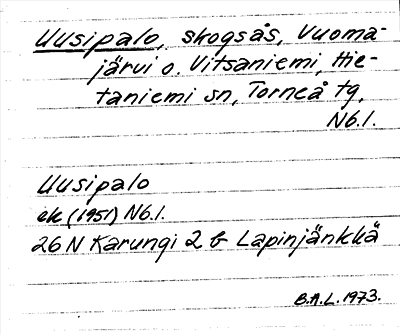 Uusipalo, skogsås, Vuoma-
järvi o. Vitsaniemi, Hie-
taniemi sn, Torneå tg,
Nb.l.
Uusipalo
ek (1951) Nb.l.
26 N Karungi 2 b Lapinjänkkä
B.A.L. 1973.